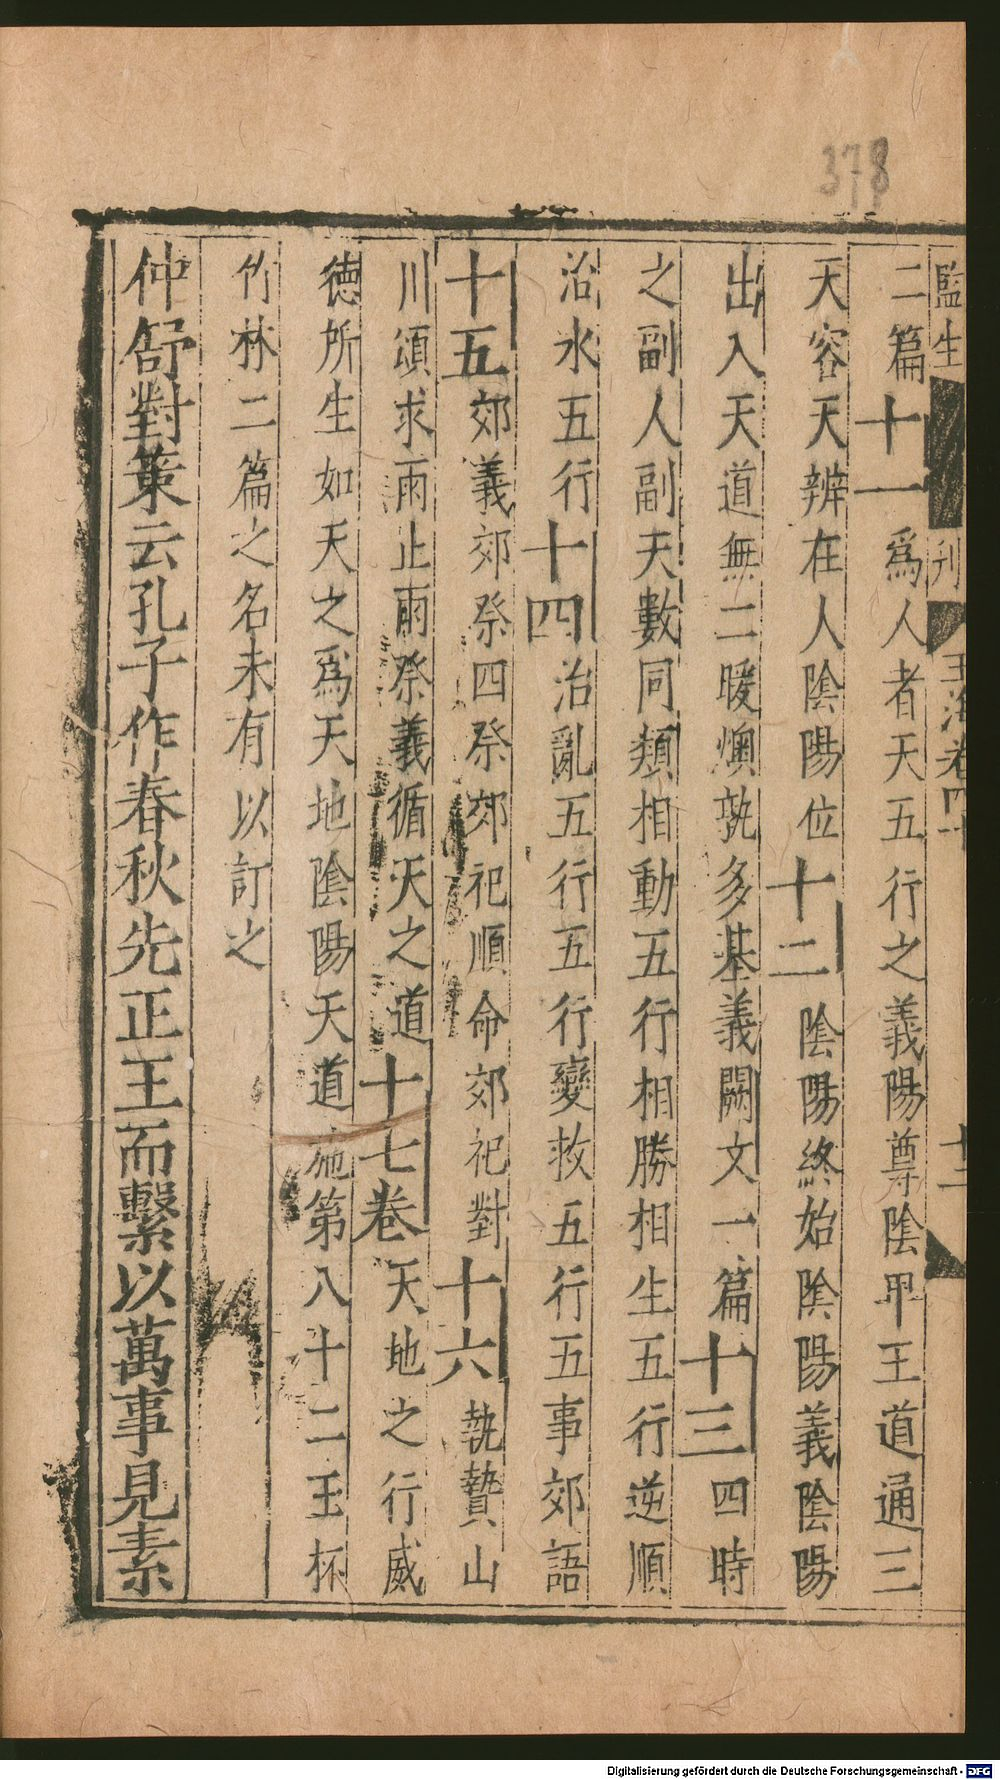 378
監生
刋
玉海卷四十
十二
二篇十一為人者天五行之義陽尊陰卑王道通三
天容天辨在人陰陽位十二陰陽終始陰陽義陰陽
出入天道無二暖燠孰多基義闕文一篇十三四時
之副人副天數同類相動五行相勝相生五行逆順
治水五行十四治亂五行五行變救五行五事郊語
十五郊義郊祭四祭郊祀順命郊祀對十六執贄山
川頌求雨止雨祭義循天之道十七卷天地之行威
德所生如天之為天地陰陽天道施第八十二玉杯
竹林二篇之名未有以訂之
仲舒對策云孔子作春秋先正王而繫以萬事見素
Digitalisierung gefördert durch die Deutsche Forschungsgemeinschaft - DFG